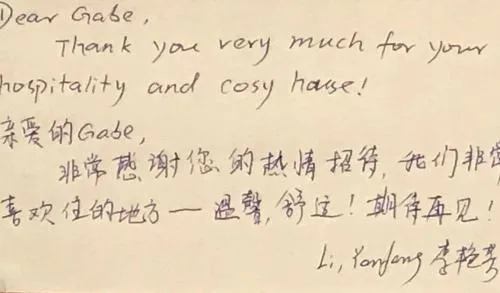 Dear Gabe,
Thank you very much for your
hospitality and cosy house!
亲爱的Gabe,
非常感谢您的热情招待,我们非常
喜欢住的地方一温馨,舒适!期待再见!
Li, Yanfang 李艳芳